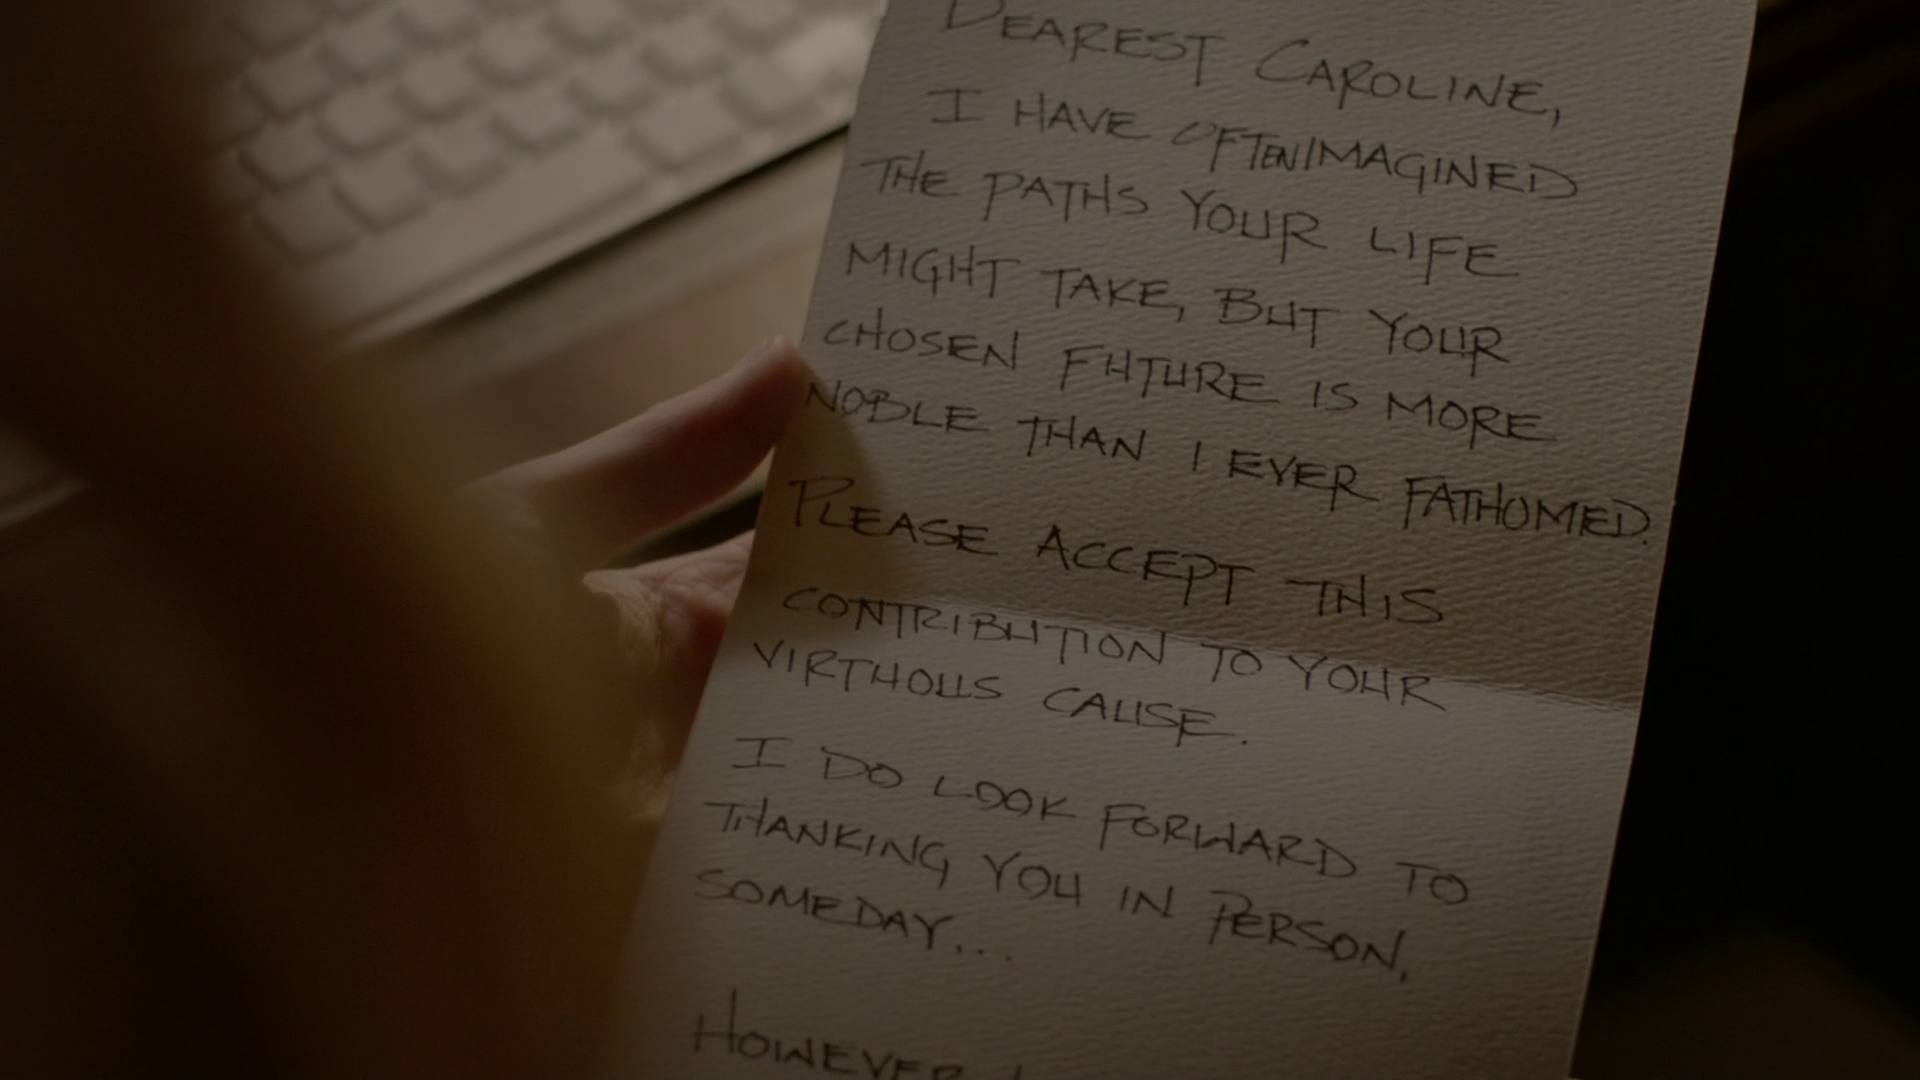 DEAREST CAROLINE,
I HAVE OFTEN IMAGINED
THE PATHS YOUR LIFE
MIGHT TAKE, BUT YOUR
CHOSEN FUTURE IS MORE
NOBLE THAN I EVER FATHOMED.
PLEASE ACCEPT THIS
CONTRIBUTION TO YOUR
VIRTUOUS CAUSE.
I DO LOOK FORWARD TO
THANKING YOU IN PERSON,
SOMEDAY...
HOWEVER